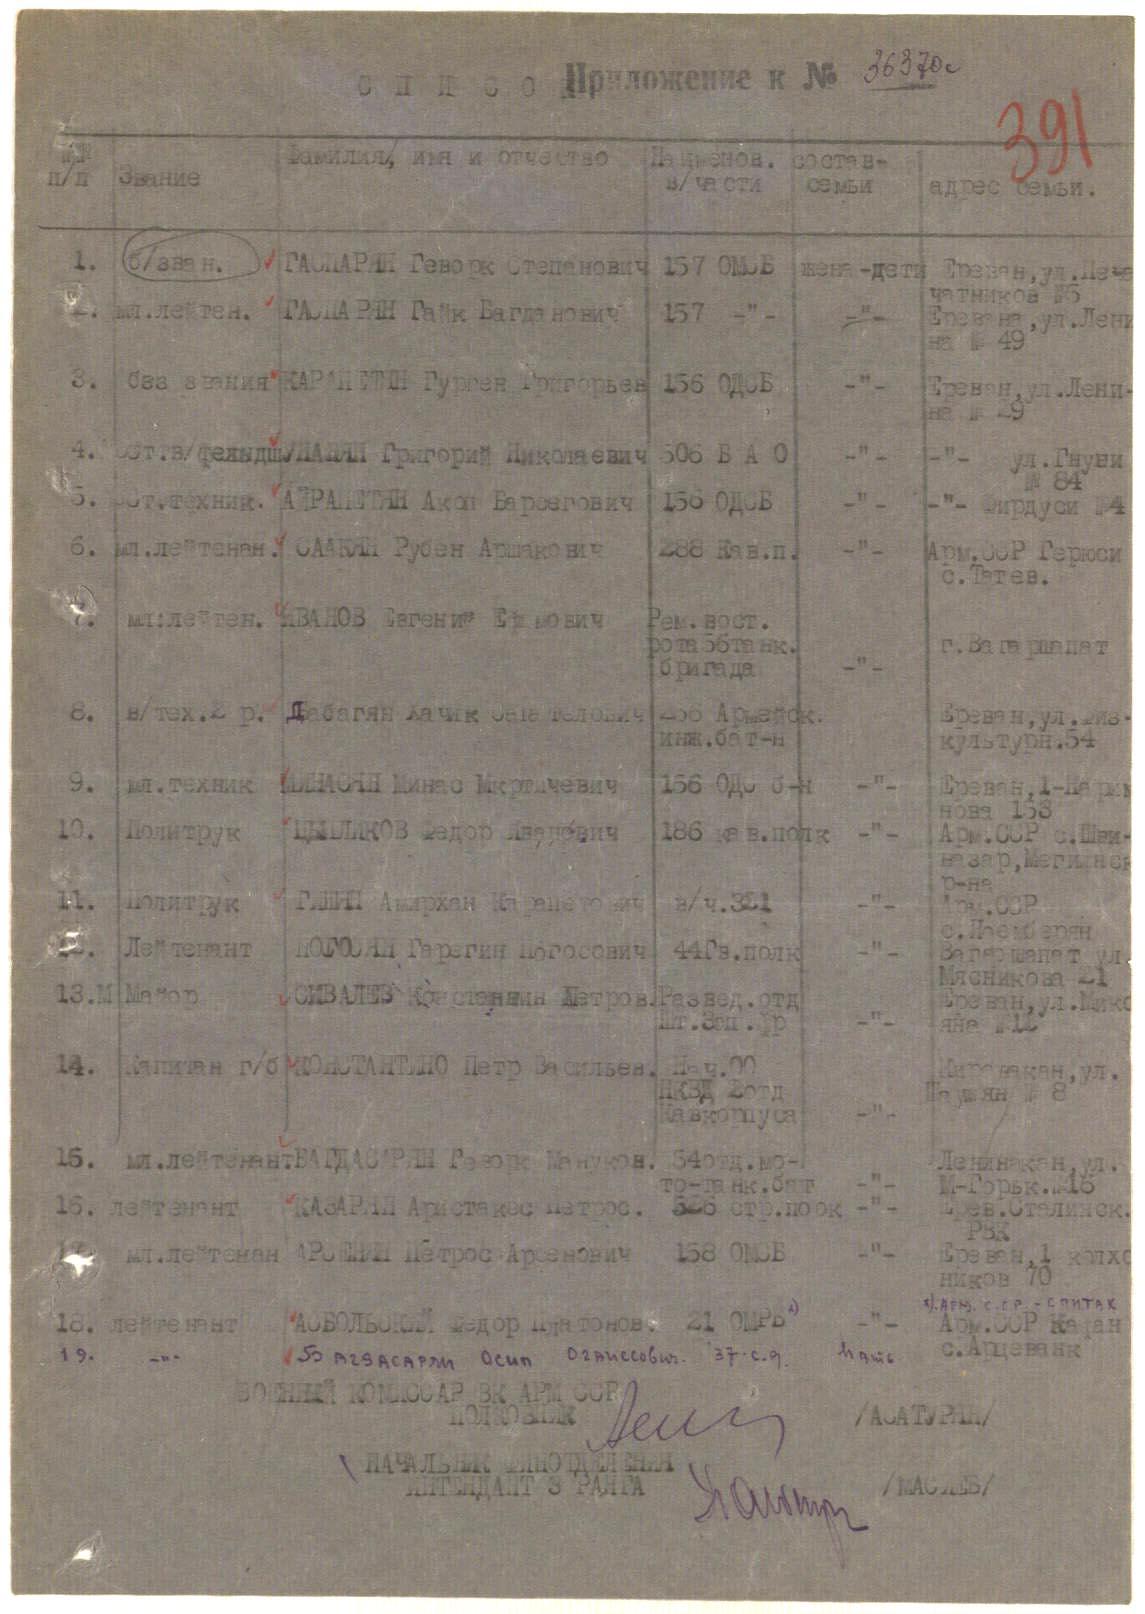 СПИСО Приложение к № 36370с
391
№№ п/п Звание Фамилия, имя и отчество Наименов. в/части состав- семьи адрес семьи.
1. б/зван. ГАСПАРЯН Геворк Степанович 157 ОМСБ жена-дети Ереван,ул.Печа
чатников №5
2. мл.лейтен. ГАСПАРЯН Гайк Багданович 157 -"- -"- Еревана,ул.Лени
на № 49
3. без звания КАРАПЕТЯН Гурген Григорьев 156 ОДСБ -"- Ереван,ул.Лени-
на № 29
4. Григорий Николаевич 506 Б А О -"- -"- ул.Гнуни
№ 84
5. ст.техник. АЙРАПЕТЯН Акоп Барсегович 156 ОДСБ -"- -"- Фирдуси №4
6. мл.лейтенан. СААКЯН Рубен Аршакович 288 Кав.п. -"- Арм.ССР Герюси
с.Татев.
7. мл:лейтен. ИВАНОВ Евгений Ефимович Рем.вост.
рота56танк. г.Вагаршапат
бригада -"-
8. в/тех.2 р. Дабагян Хачик 256 Армейск. Ереван,ул.Физ-
инж.бат-н культурн.54
9. мл.техник МИНАСЯН Минас Мкртичевич 156 ОДС б-н -"- Ереван,1-Нарим
нова 153
10. Политрук ЦЫБЛИКОВ Федор Иванович 186 кав.полк -"- Арм.ССР с.Шви-
назар,Мегринск
р-на
11. Политрук Амирхан Карапетович в/ч.321 -"- Арм.ССР
12. Лейтенант ПОГОСЯН Гарегин Погосович 44Гв.полк -"- Вагаршапат ул.
Мясникова 21
13.М Майор СИВАЛЕВ Константин Петров. Развед.отд Ереван,ул.Мико
Шт.Зап.Фр -"- яна №12
14. Капитан г/б КОНСТАНТИНО Петр Васильев. Нач.ОО Кировакан,ул.
НКВД 2отд Шаумян № 8
Кавкорпуса -"-
15. мл.лейтенант БАГДАСАРЯН Геворк Мануков. 54отд.мо- Ленинакан,ул.
то-танк.бат -"- М-Горьк.№15
16. лейтенант КАЗАРЯН Аристакес Петрос. 526 стр.полк -"- Ерев.Сталинск.
РВК
17. мл.лейтенан АРСЕНЯН Петрос Арсенович 158 ОМСБ -"- Ереван,1 колхо
ников 70
х). Арм. С.С.Р. - Спитак
18. лейтенант АСБОЛЬСКИЙ Федор Платонов. 21 ОМРБ х) -"- Арм.ССР Кафан
с.Арцеванк
19. -"- Багдасарян Осип Оганесович. 37 с.д. Мать
ВОЕННЫЙ КОМИССАР ВК АРМ ССР
ПОЛКОВНИК /АСАТУРЯН/
НАЧАЛЬНИК ФИНОТДЕЛЕНИЯ
ИНТЕНДАНТ 3 РАНГА /МАСЛЕВ/